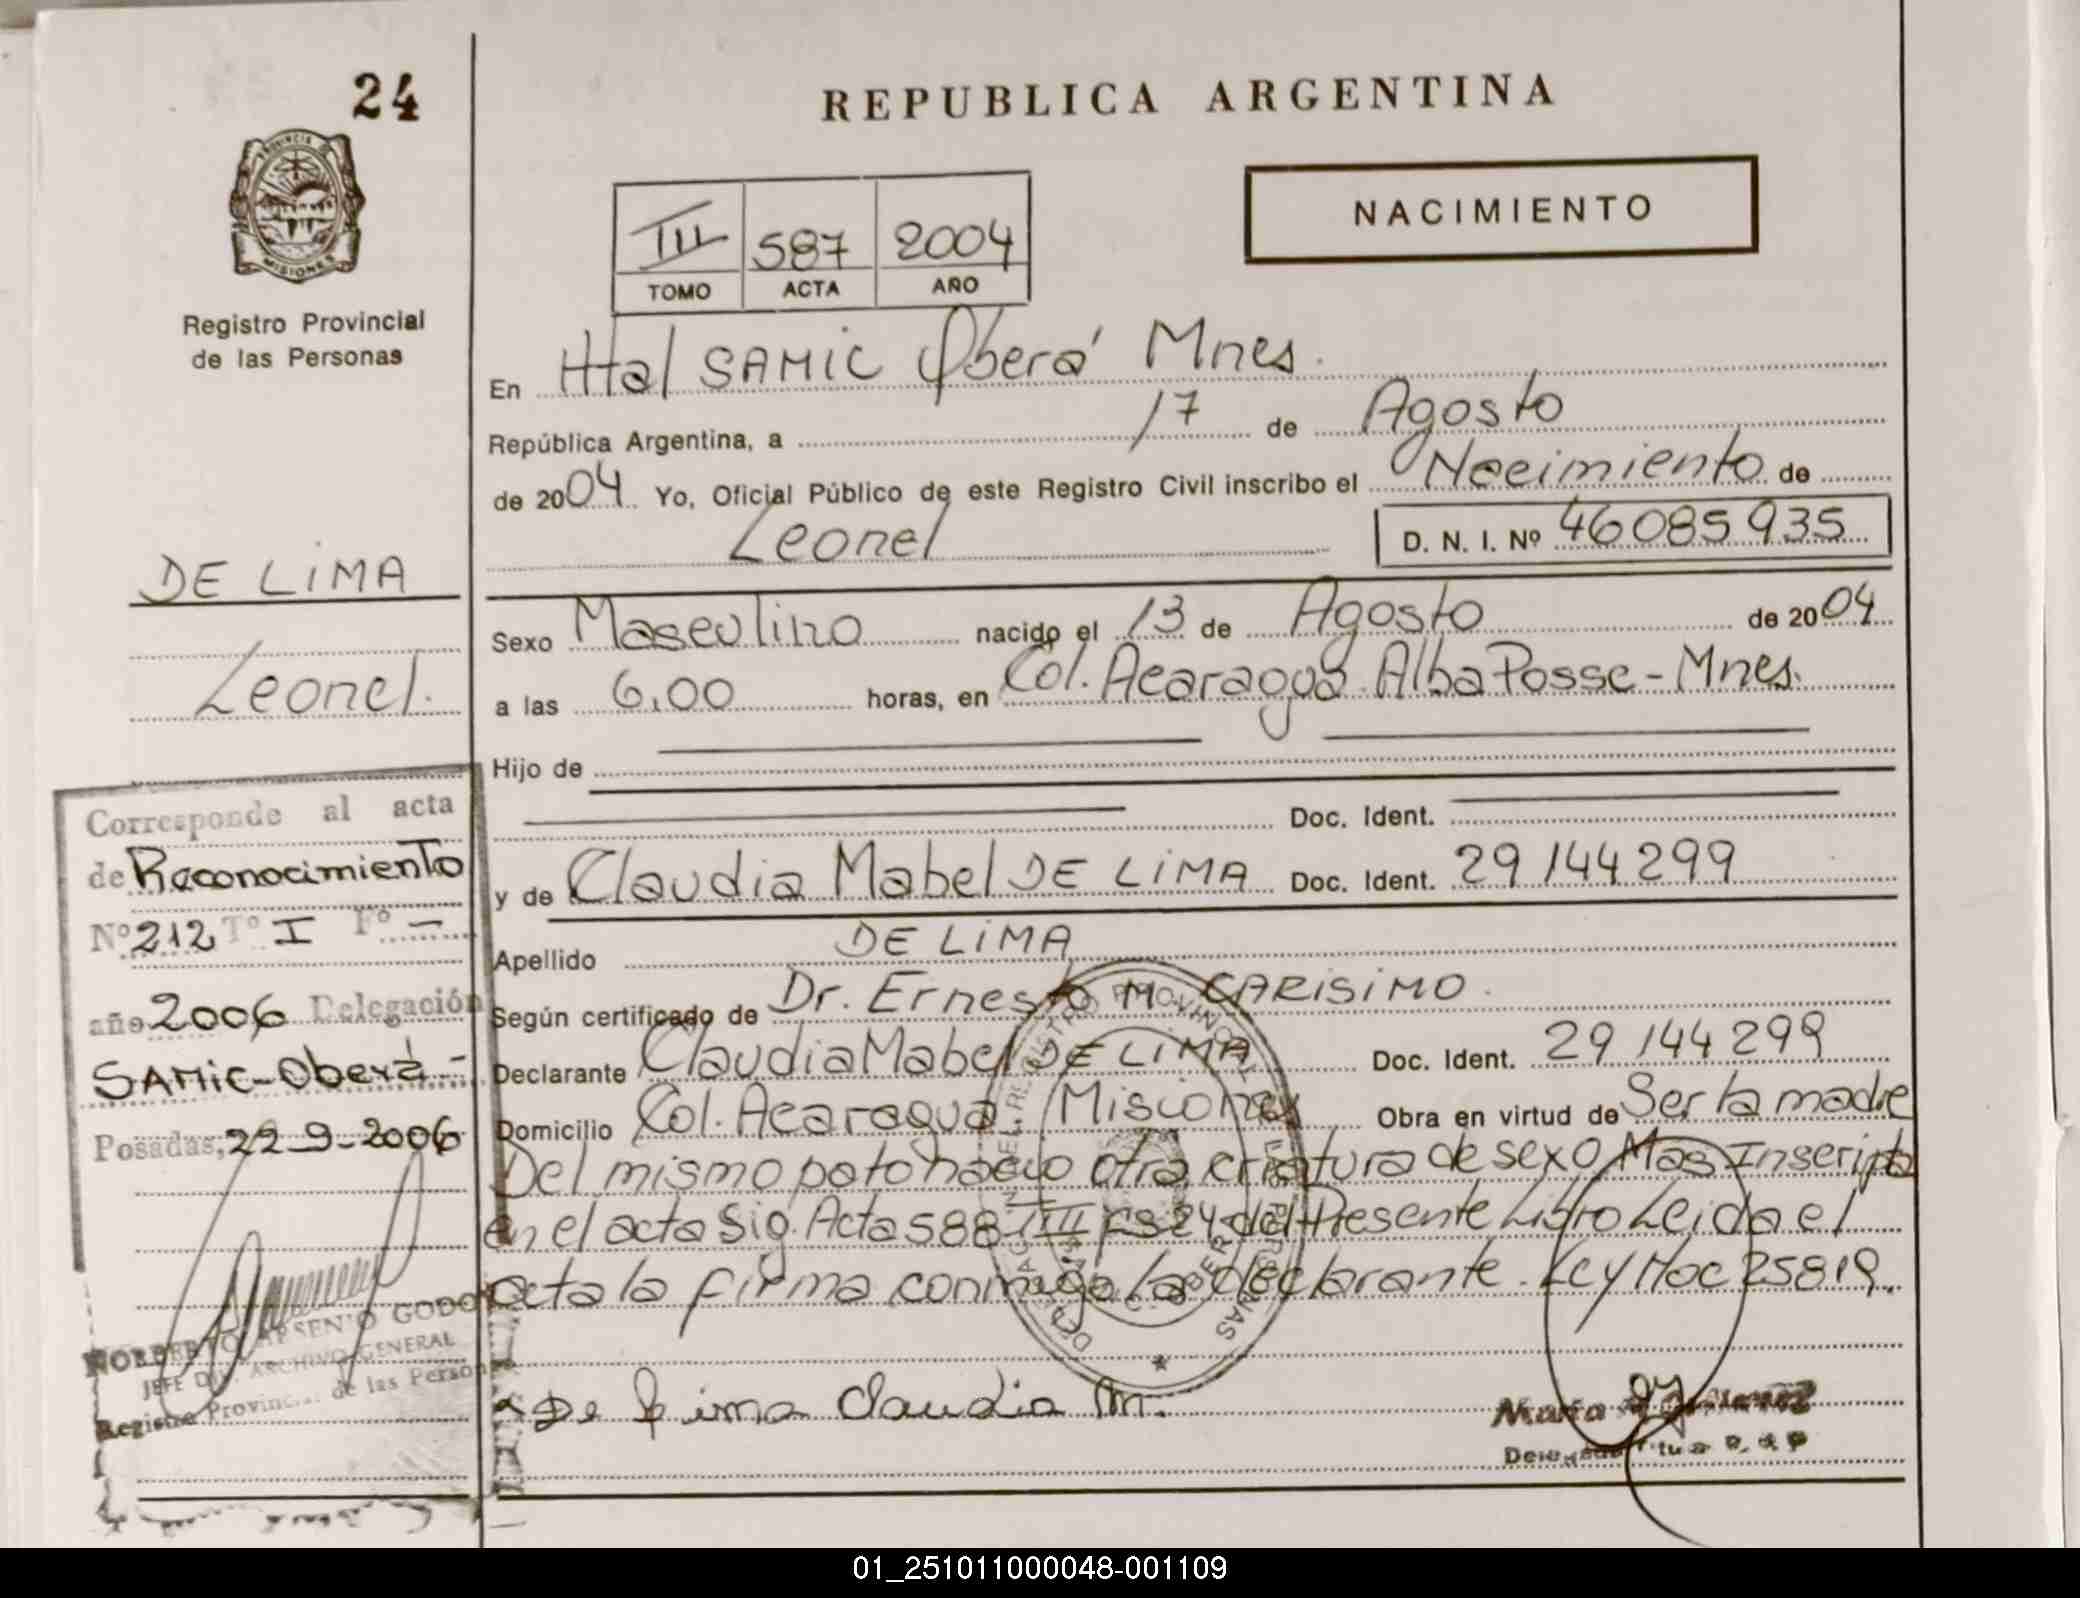 24
REPUBLICA ARGENTINA
PROVINCIA DE
MISIONES
Registro Provincial
de las Personas
NACIMIENTO
III 587 2004
TOMO ACTA AÑO
En Htal SAMIC Oberá Mnes.
República Argentina, a 17 de Agosto
de 2004 Yo, Oficial Público de este Registro Civil inscribo el Nacimiento de
Leonel D. N. I. Nº 46085935
DE LIMA
Leonel.
Sexo Masculino nacido el 13 de Agosto de 2004
a las 6,00 horas, en Col. Acaragua Alba Posse - Mnes.
Hijo de
Doc. Ident.
y de Claudia Mabel DE LIMA Doc. Ident. 29144299
Apellido DE LIMA
Según certificado de Dr. Ernesto M. CARISIMO.
Declarante Claudia Mabel DE LIMA Doc. Ident. 29144299
Domicilio Col. Acaragua Misiones Obra en virtud de Ser la madre
Del mismo parto nacio otra criatura de sexo Mas Inscripta
en el acta Sig. Acta 588 TIII FS 24 del Presente Libro Leida el
acta la firma conmigo la declarante. Ley Moc 25819.
De Lima Claudia M.
Maria
Corresponde al acta
de Reconocimiento
Nº 212 Tº I Fº -
año 2006 Delegación
SAMIC-Oberá-
Posadas, 22-9-2006
NORBERTO ARSENIO GODOY
JEFE DIV. ARCHIVO GENERAL
Registro Provincial de las Personas
01_251011000048-001109